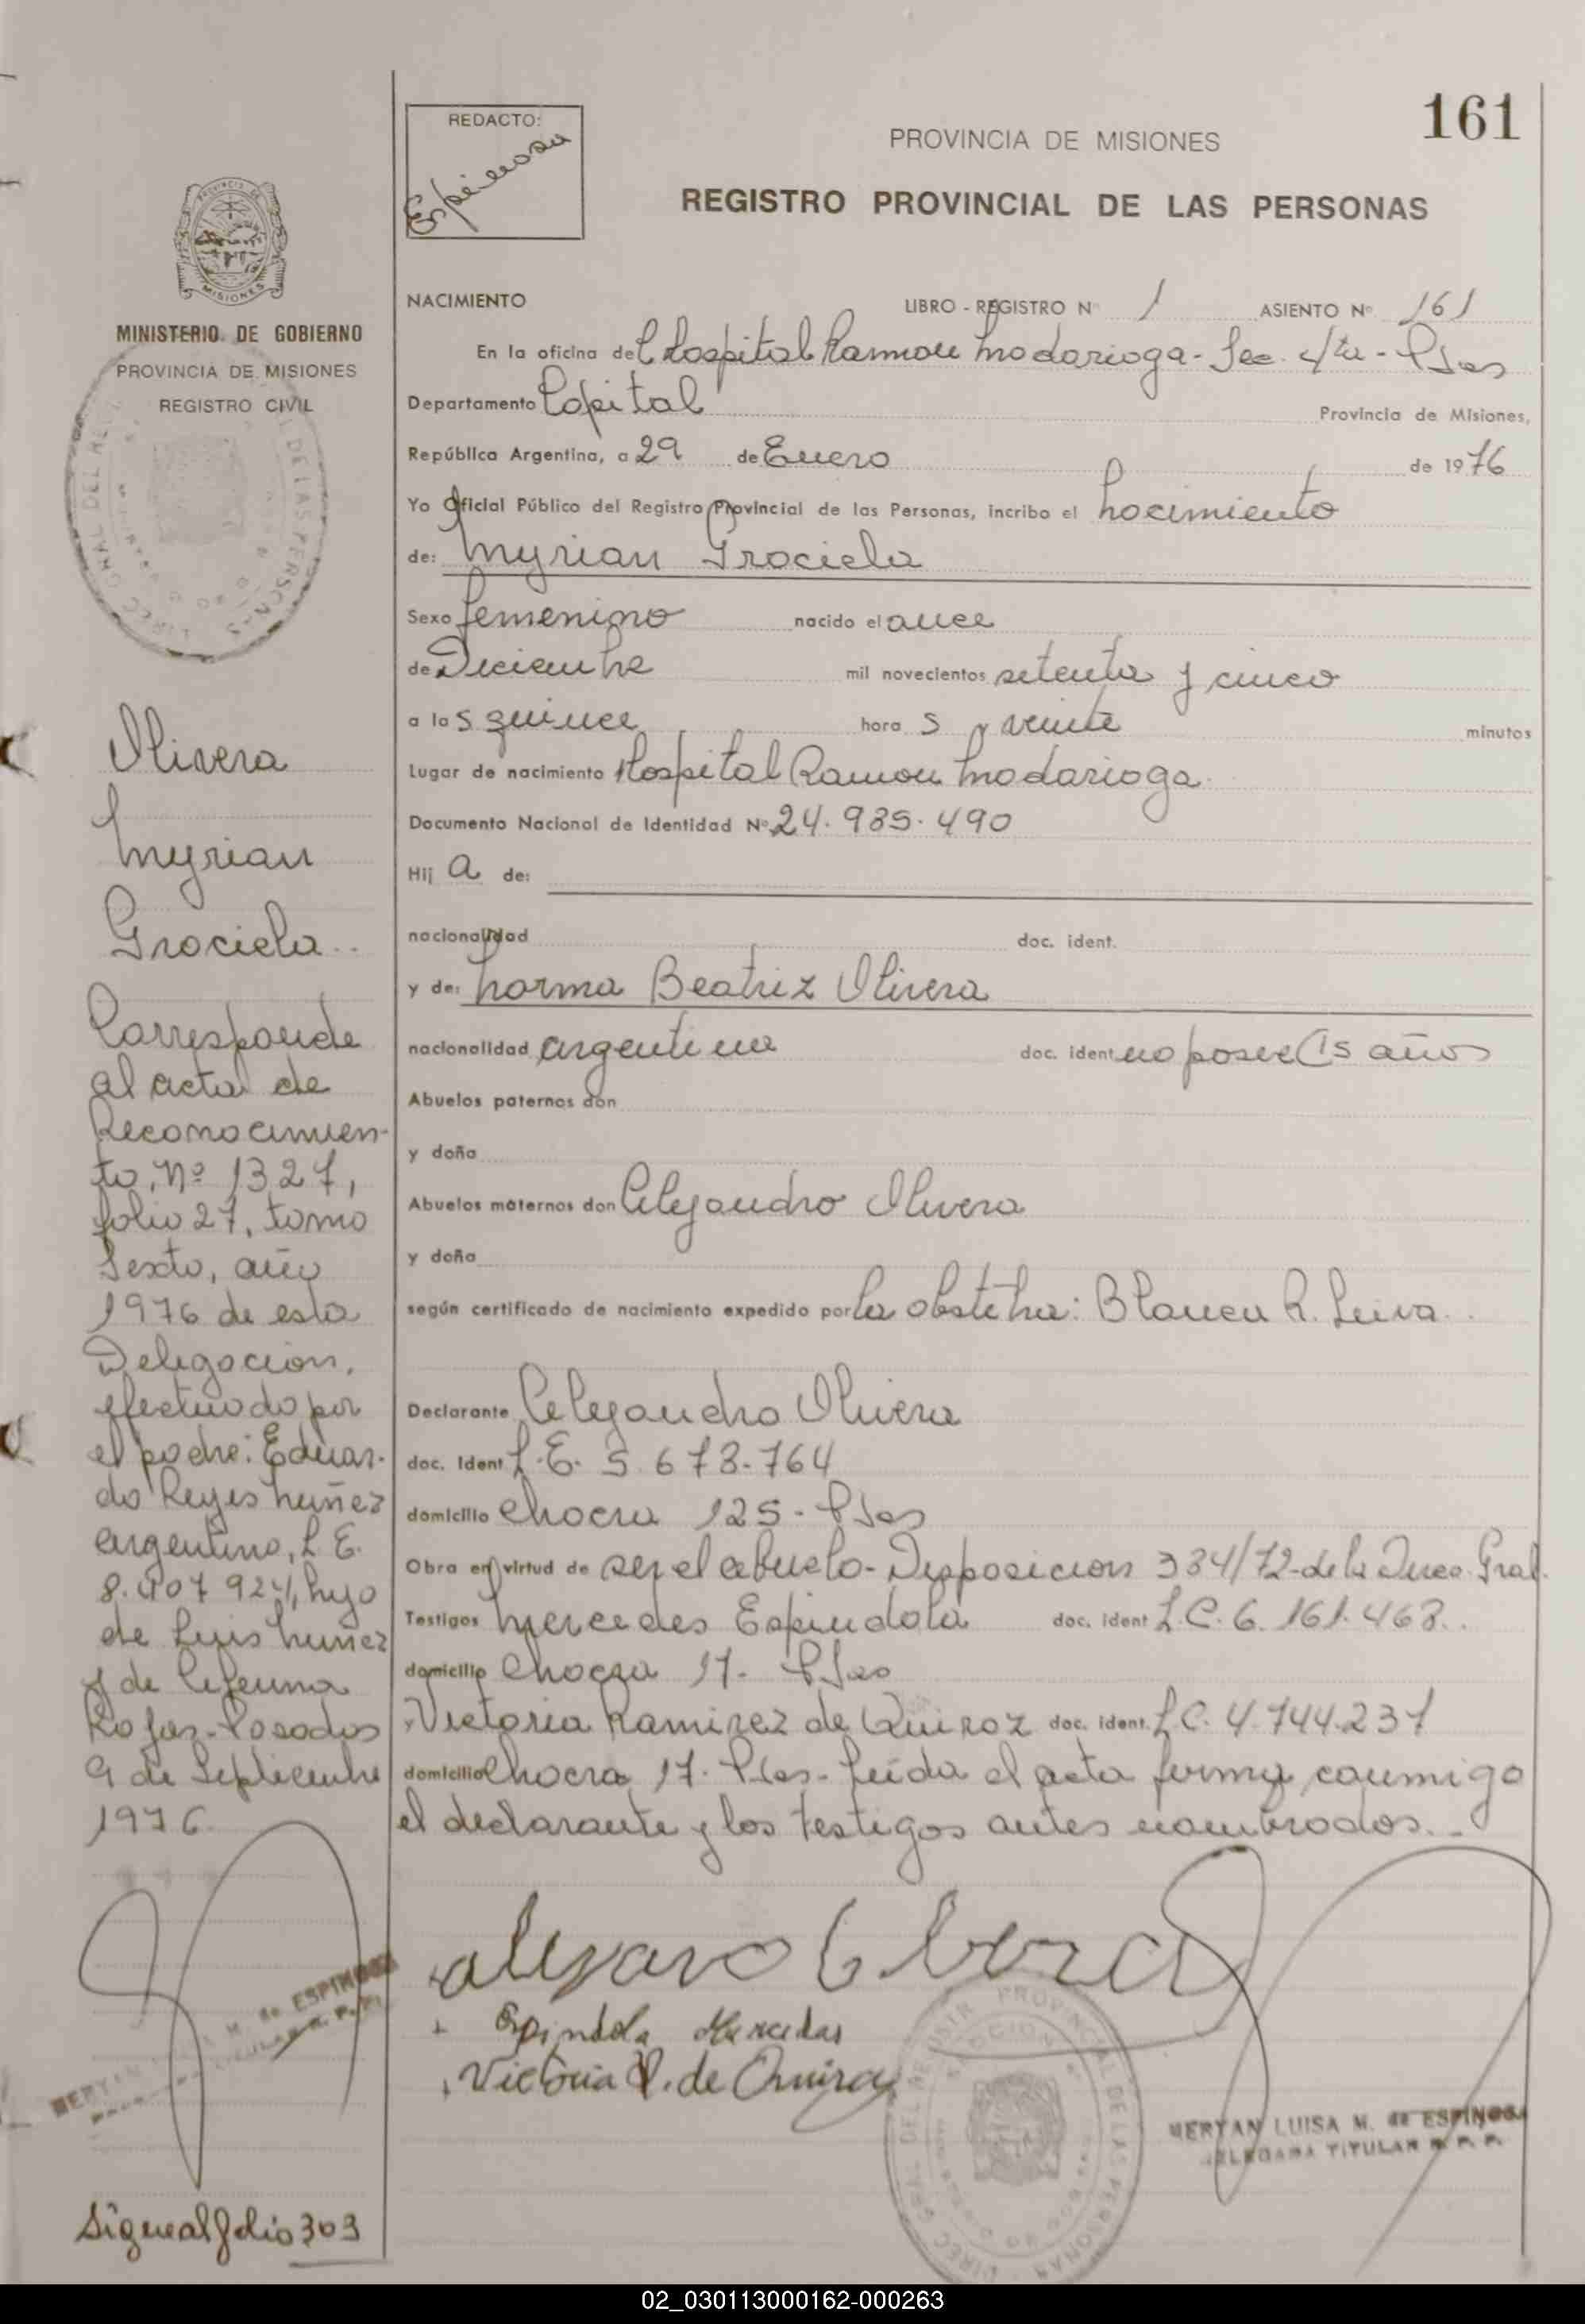 161
REDACTO:
Espinosa
PROVINCIA DE MISIONES
REGISTRO PROVINCIAL DE LAS PERSONAS
MISIONES
MINISTERIO DE GOBIERNO
PROVINCIA DE MISIONES
REGISTRO CIVIL
NACIMIENTO LIBRO - REGISTRO Nº 1 ASIENTO Nº 161
En la oficina del Hospital Ramon Madariaga - Sec. 4ta - Pdas
Departamento Capital Provincia de Misiones,
República Argentina, a 29 de Enero de 1976
Yo Oficial Público del Registro Provincial de las Personas, incribo el nacimiento
de: Myrian Graciela
Sexo femenino nacido el once
de Diciembre mil novecientos setenta y cinco
a las quince horas y veinte minutos
Lugar de nacimiento Hospital Ramon Madariaga.
Documento Nacional de Identidad Nº 24.935.490
Hija de:
nacionalidad doc. ident.
y de: Norma Beatriz Olivera
nacionalidad argentina doc. ident no posee (15 años
Abuelos paternos don
y doña
Abuelos maternos don Alejandro Olivera
y doña
según certificado de nacimiento expedido por la obstetra: Blanca R. Leiva.
Declarante Alejandro Olivera
doc. ident L.E. 5.673.764
domicilio chacra 125 - Pdas
Obra en virtud de ser el abuelo - Disposicion 334/72 - de la Direc. Gral.
Testigos Mercedes Espindola doc. ident L.C. 6.161.463.
domicilio chacra 17 - Pdas
y Victoria Ramirez de Quiroz doc. ident. L.C. 4.744.237
domicilio chacra 17 - Pdas - Leida el acta firma conmigo
el declarante y los testigos antes nombrados.
Olivera
Myrian
Graciela
Corresponde
al acta de
Reconocimien-
to, Nº 1327,
folio 27, tomo
Sexto, año
1976 de esta
Delegacion,
efectuado por
el padre: Eduar-
do Reyes Nuñez
argentino, L E.
8.407 924, hijo
de Luis Nuñez
y de
Rojas - Posadas
9 de Septiembre
1976.
Espindola Mercedes
Victoria R. de Quiroz
MERYAN LUISA M. de ESPINOSA
DELEGADA TITULAR R. P. P.
MERYAN M. de ESPINOSA
TITULAR R. P. P.
DIREC. GRAL. DEL REGISTR. PROVINCIAL DE LAS PERSONAS
Sigue al folio 303
02_030113000162-000263